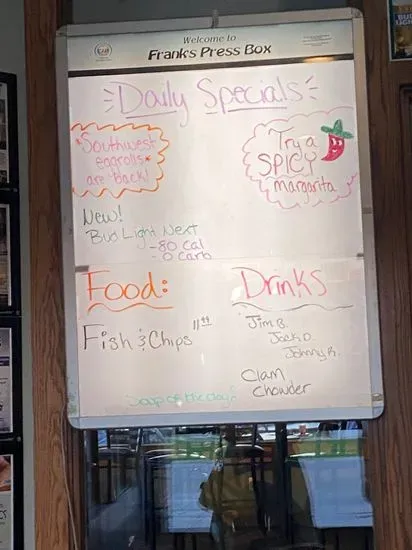 Welcome to
Frank's Press Box
Daily Specials
*Southwest
eggrolls*
are back!
Try a
SPICY
margarita
New!
Bud Light Next
-80 cal
-0 carb
Food:
Fish & Chips 11.99
Drinks
Jim B.
Jack D.
Johnny R.
Soup of the day:
Clam
Chowder